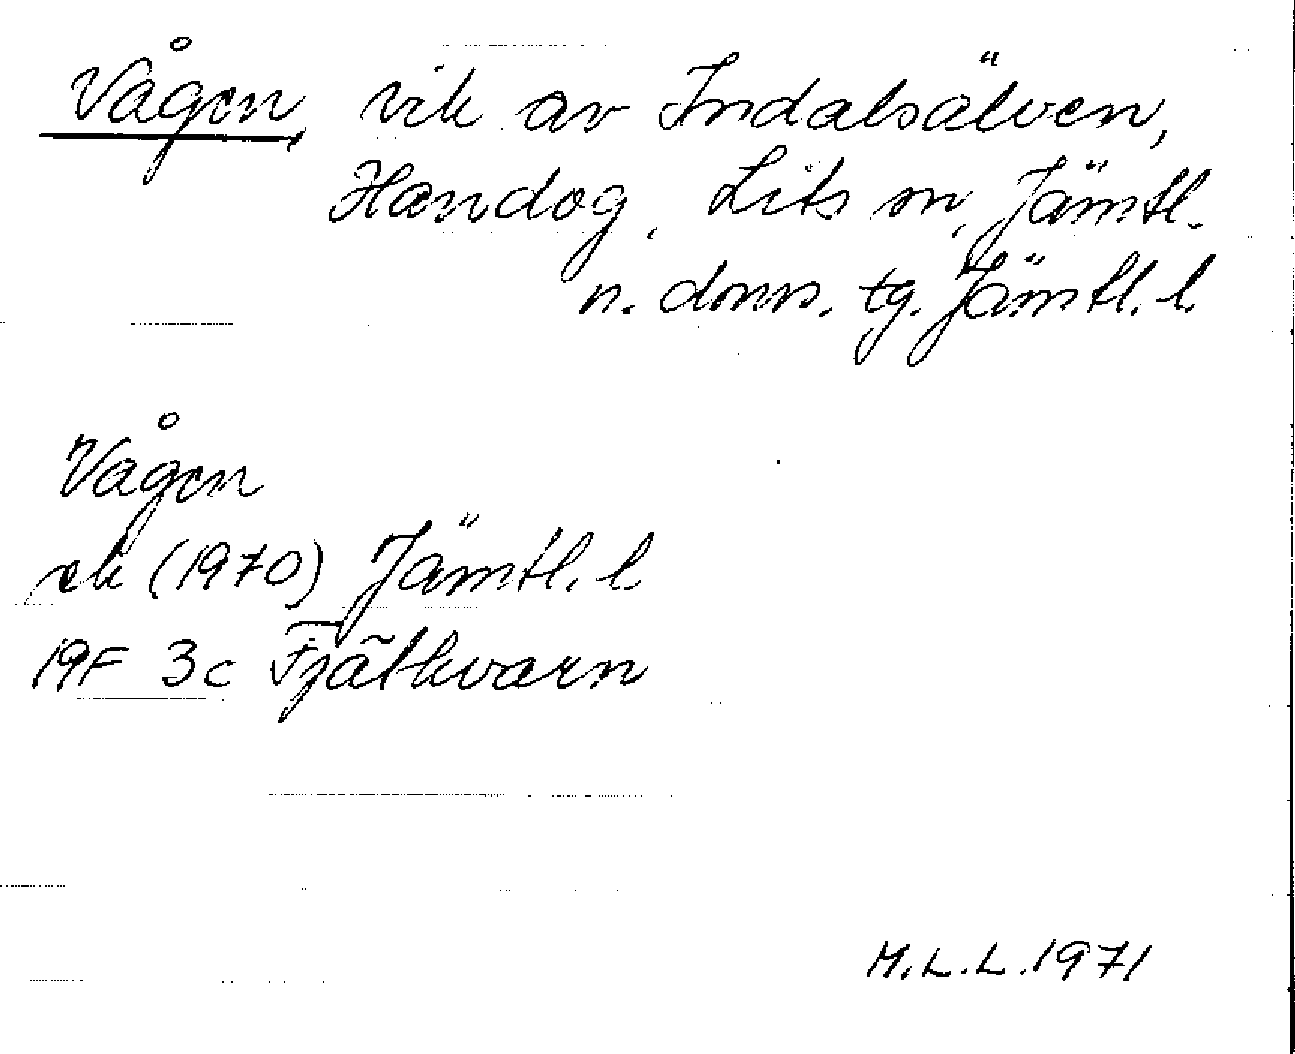 Vågen, vik av Indalsälven,
Handog, Lits sn, Jämtl.
n. doms. tg. Jämtl. l.
Vågen
ek (1970) Jämtl. l
19F 3c Fjälkvarn
M.L.L. 1971